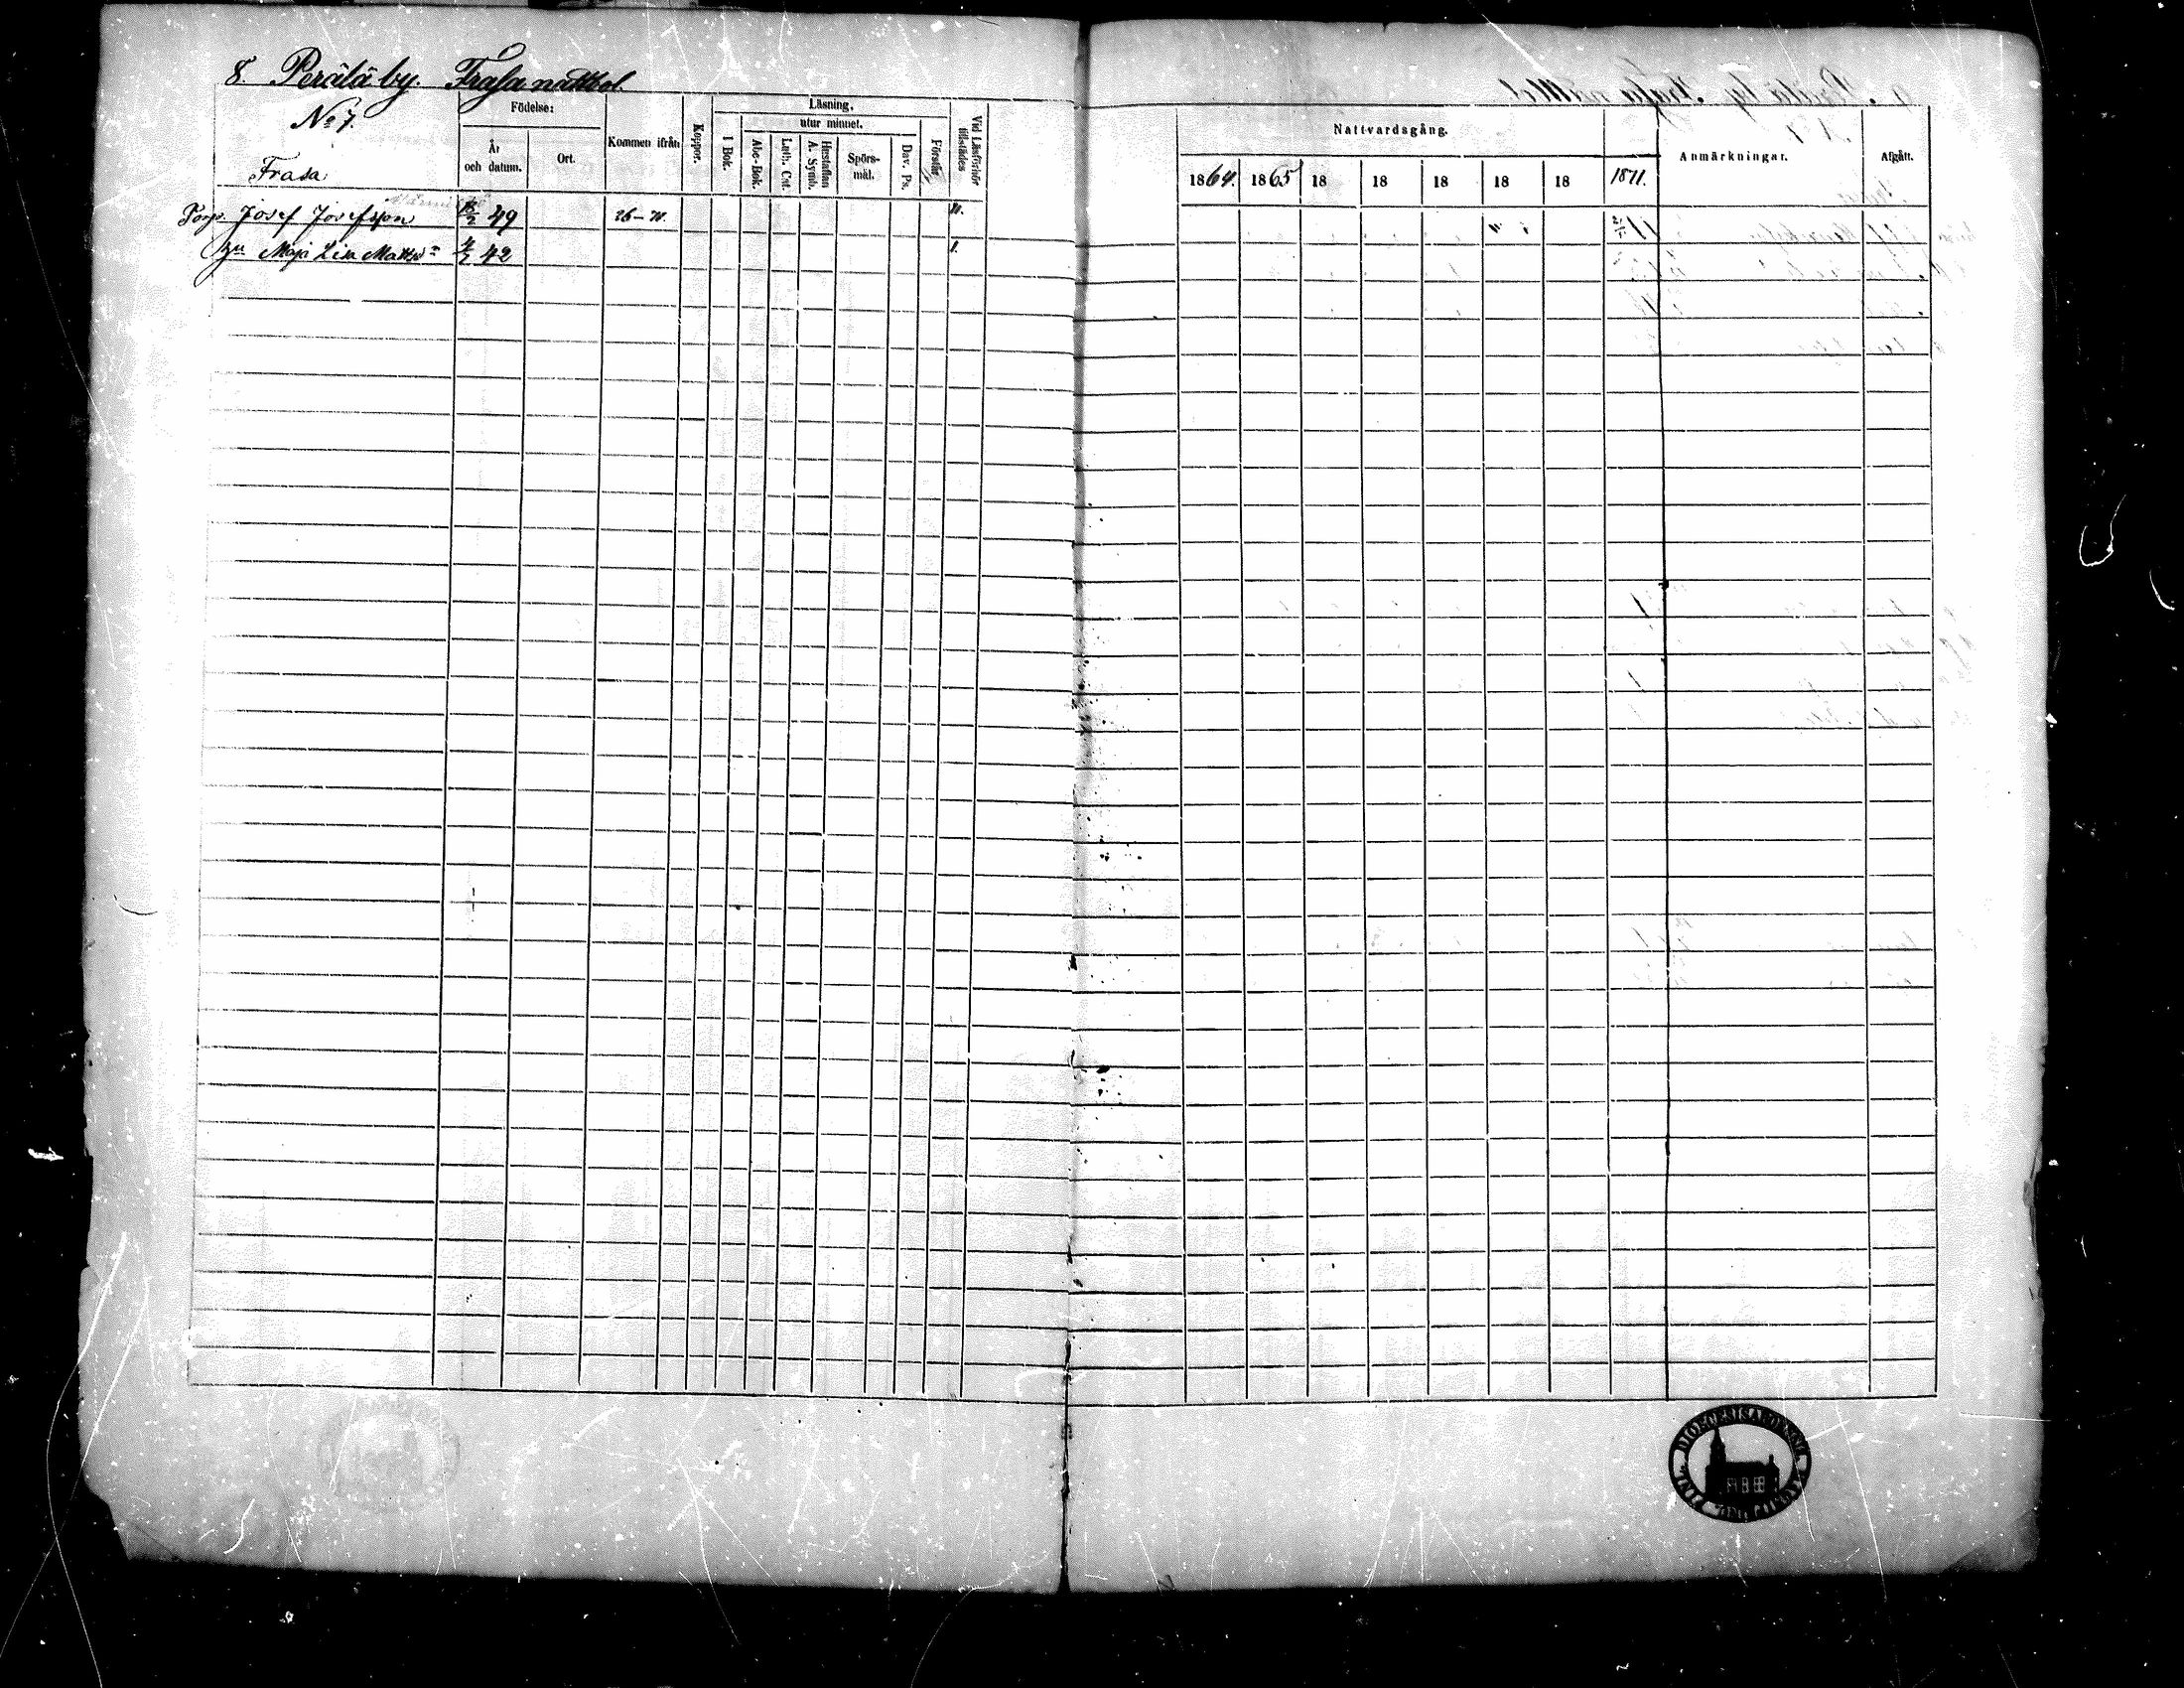 8. Perälä by. Frasa nattbol.
No 7.
Frasa
Födelse:
År och datum.
Ort.
Kommen ifrån
Koppor.
Läsning.
I Bok.
utur minnet.
Abc-Bok.
Luth. Cat.
Hustaflan A. Symb.
Spörs-mål.
Dav. Ps.
Förstår
Vid Läsförhör tillstädes
Nattvardsgång.
1864. 1865 18 18 18 18 18 1871.
Anmärkningar.
Afgått.
Torp. Josef Josefsson 49 26-71.
Hu Maja Lisa Mattsd 42 1.